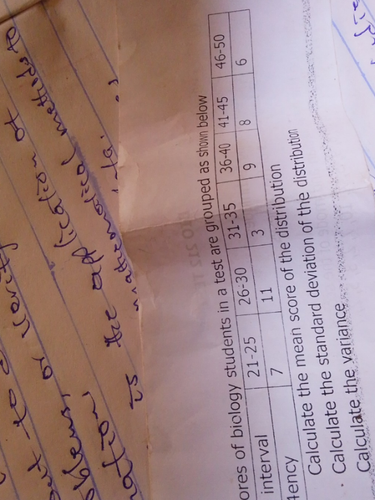 ores of biology students in a test are grouped as shown below
interval 21-25 26-30 31-35 36-40 41-45 46-50
ency 7 11 3 9 8 6
Calculate the mean score of the distribution
Calculate the standard deviation of the distribution
Calculate the variance
or
is the application of
mathematical methods to